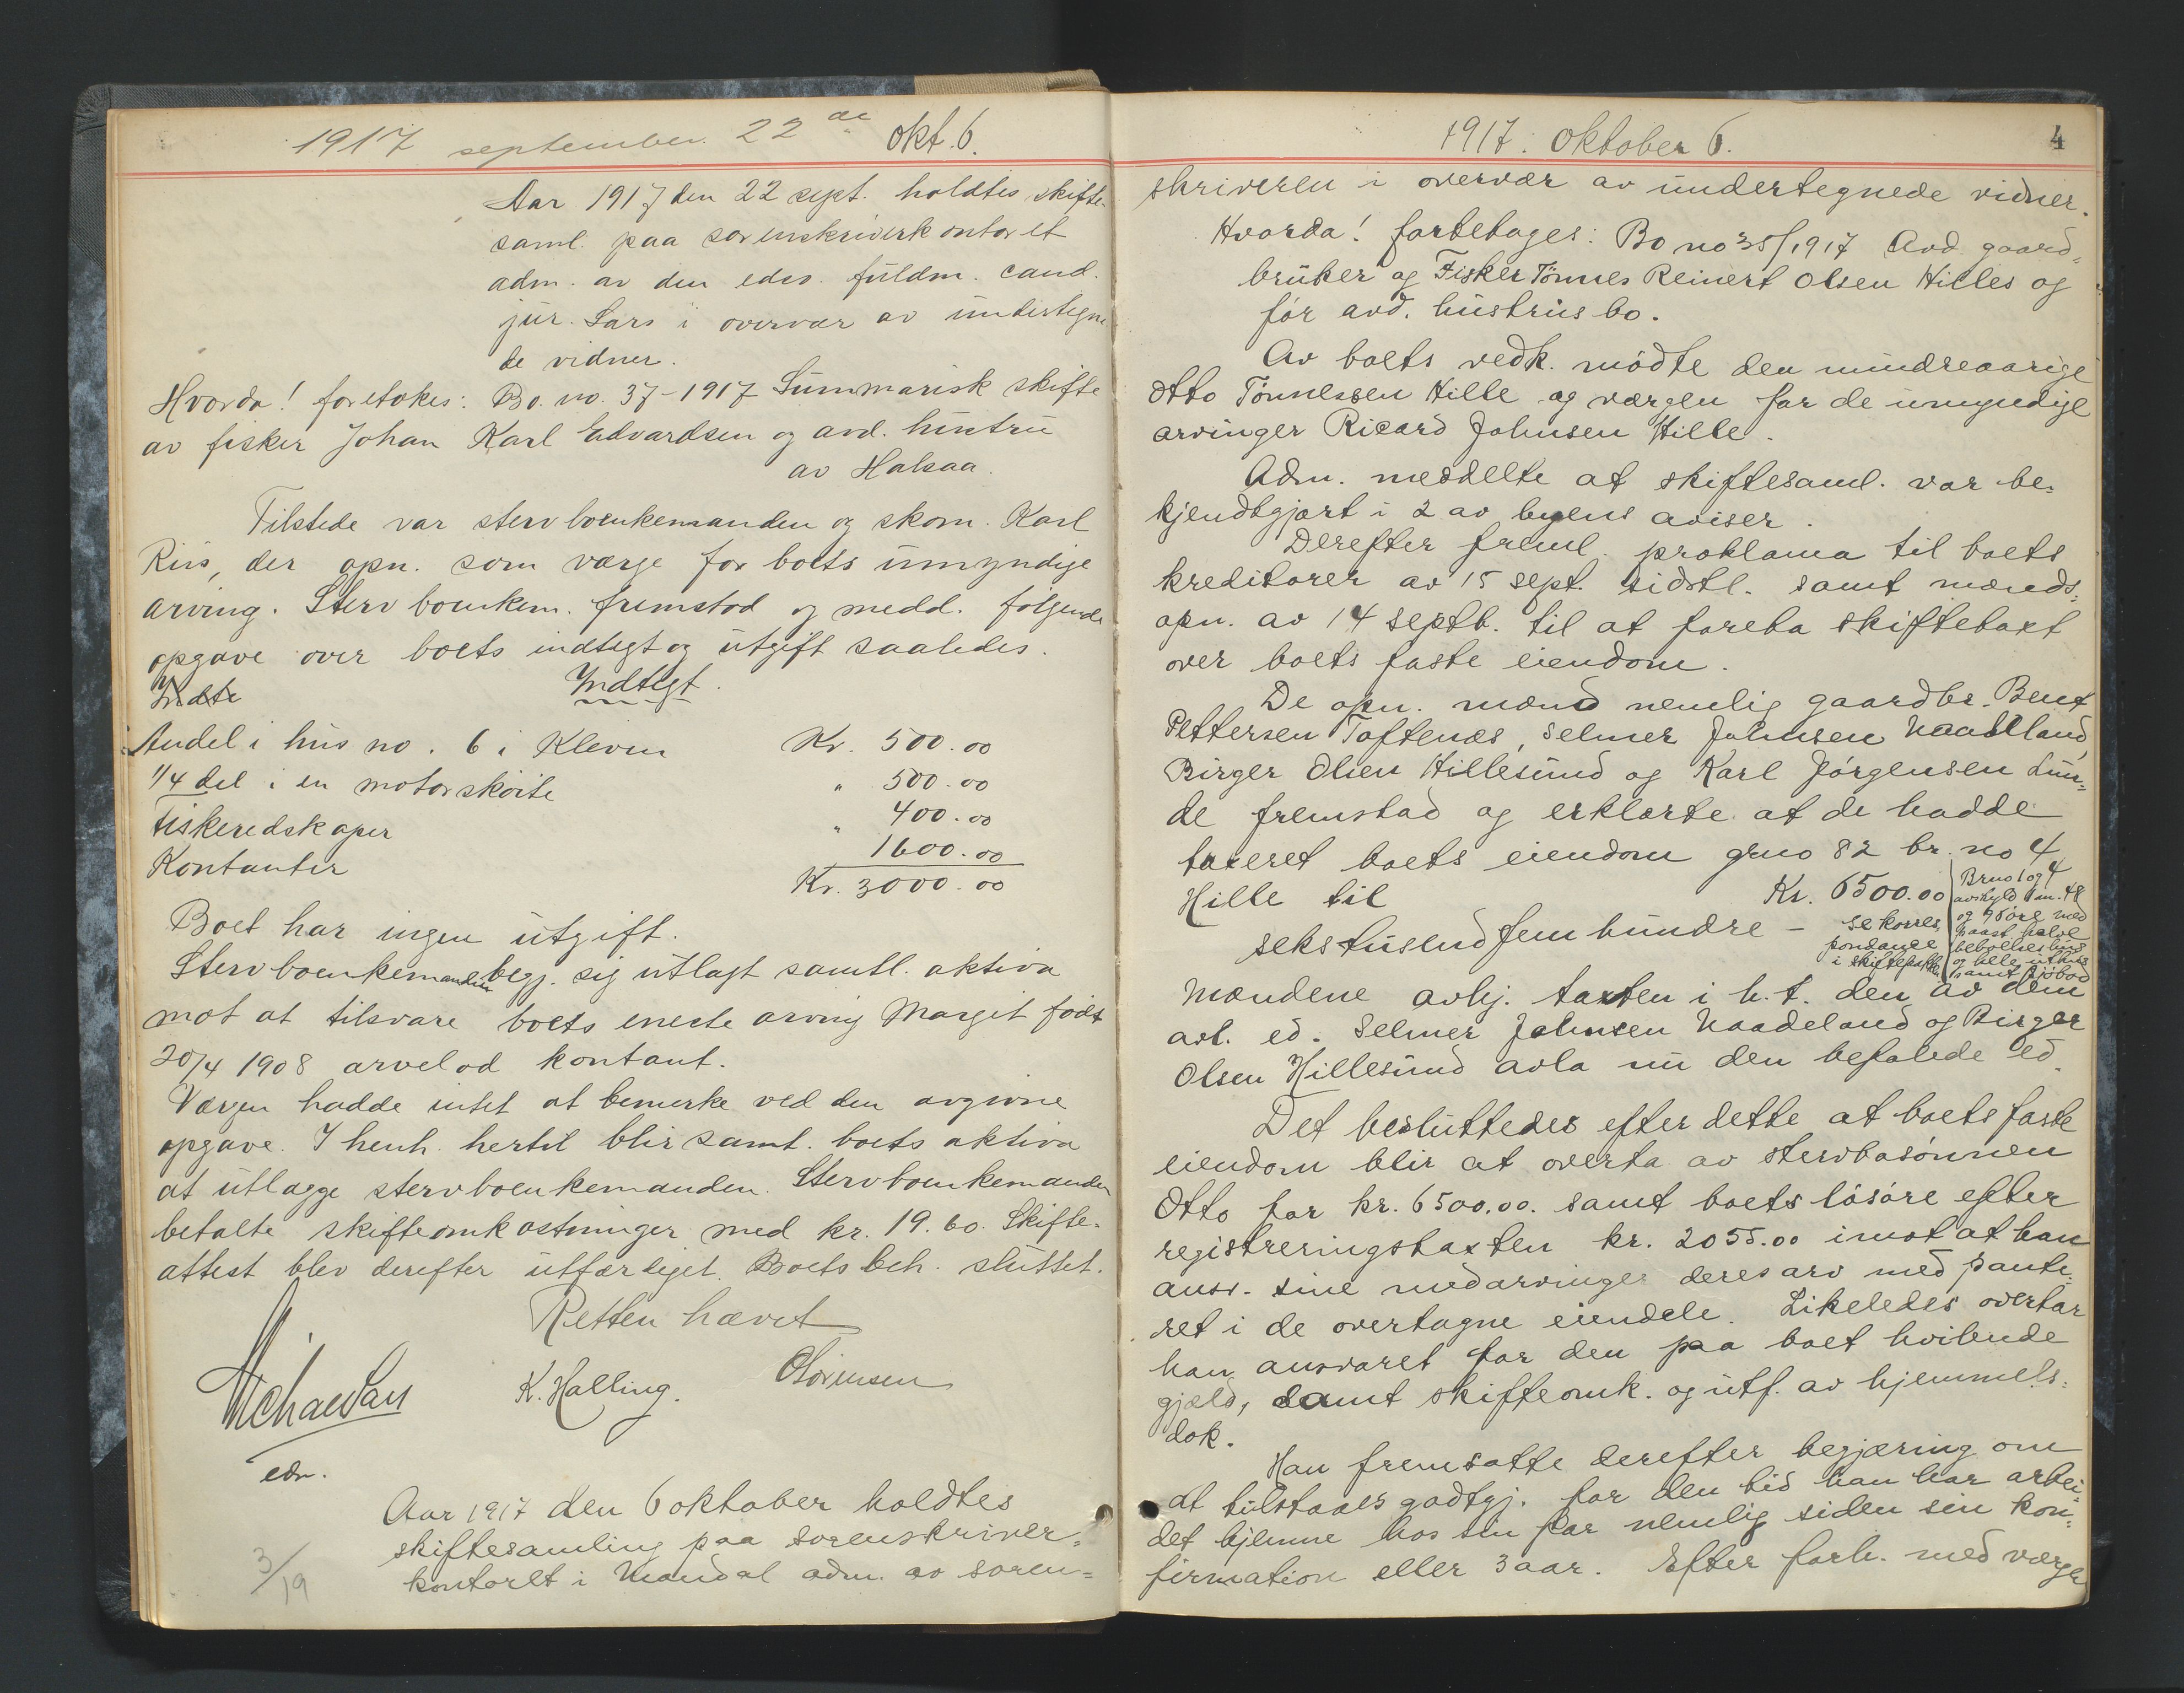 1917 september. 22de okt. 6.
Aar 1917 den 22 sept. holdtes skifte-
saml. paa sorenskriverkontoret
adm. av den edsv. fuldm. cand.
jur. Lars i overvær av undertegne
de vidner.
Hvorda! foretokes: Bo. no. 37-1917 Summarisk skifte
av fisker Johan Karl Edvardsen og avd. hustru
av Halsaa.
Tilstede var stervboenkemanden og skom. Karl
Riis, der opn. som værge for boets umyndige
arving. Stervboenkem. fremstod og medd. følgende
opgave over boets indtegt og utgift saaledes.
Indte Indtegt.
Andel i hus no. 6 i Kleven Kr. 500.00
1/4 del i en motorskøite " 500.00
Fiskeredskaper " 400.00
Kontanter 1600.00
Kr. 3000.00
Boet har ingen utgift.
Stervboenkemanden begj. sig utlagt samtl. aktiva
mot at tilsvare boets eneste arving Margit født
20/4 1908 arvelod kontant.
Værgen hadde intet at bemerke ved den avgivne
opgave. I henh. hertil blir samt. boets aktiva
at utlægge stervboenkemanden. Stervboenkemanden
betalte skifteomkostninger med kr. 19.60. Skifte-
attest blev derefter utfærdiget. Boets beh. sluttet.
Retten hævet
K. Halling. OSørensen
edsv.
Aar 1917 den 6 oktober holdtes
skiftesamling paa sorenskriver=
kontoret i Mandal adm. av soren=
3/19
1917. Oktober 6. 4
skriveren i overvær av undertegnede vidner.
Hvorda! foretoges: Bo no 35/1917 Avd. gaard=
bruker og Fisker Tønnes Reinert Olsen Hilles og
før avd. hustrus bo.
Av boets vedk. mødte den mindreaarige
Otto Tønnessen Hille og værgen for de umyndige
arvinger Ricard Johnsen Hille.
Adm. meddelte at skiftesaml. var be=
kjendtgjort i 2 av byens aviser.
Derefter freml. proklama til boets
kreditorer av 15 sept. sidstl. samt mænds=
opn. av 14 septb. til at foreta skiftetaxt
over boets faste eiendom.
De opn. mænd nemlig gaardbr. Bent
Pettersen Toftenes, Selmer Johnsen Naadeland,
Birger Olsen Hillesund og Karl Jørgensen Lun=
de fremstod og erklærte at de hadde
taxeret boets eiendom grno 82 br. no 4
Hille til Kr. 6500.00
Bruo 1 og 4
avskyld 1 m. 48
og 95 øre med
paast. halve
beboelseshus
og hele uthus
samt sjøbod
sekstusendfemhundre - se korres
pondance
i skiftepakken
Mændene avhj. taxten i h. t. den av dem
avl. ed. Selmer Johnsen Naadeland og Birger
Olsen Hillesund avla nu den befalede ed.
Det besluttedes efter dette at boets faste
eiendom blir at overta av stervbosønnen
Otto for kr. 6500.00. samt boets løsøre efter
registreringstaxten kr. 2055.00 imot at han
ansv. sine medarvinger deres arv med pante=
ret i de overtagne eiendele. Likeledes overtar
han ansvaret for den paa boet hvilende
gjæld, samt skifteomk. og utf. av hjemmels=
dok.
Han fremsatte derefter begjæring om
at tilstaaes godtgj. for den tid han har arbei=
det hjemme hos sin far nemlig siden sin kon=
firmation eller 3 aar. Efter forh. med værge